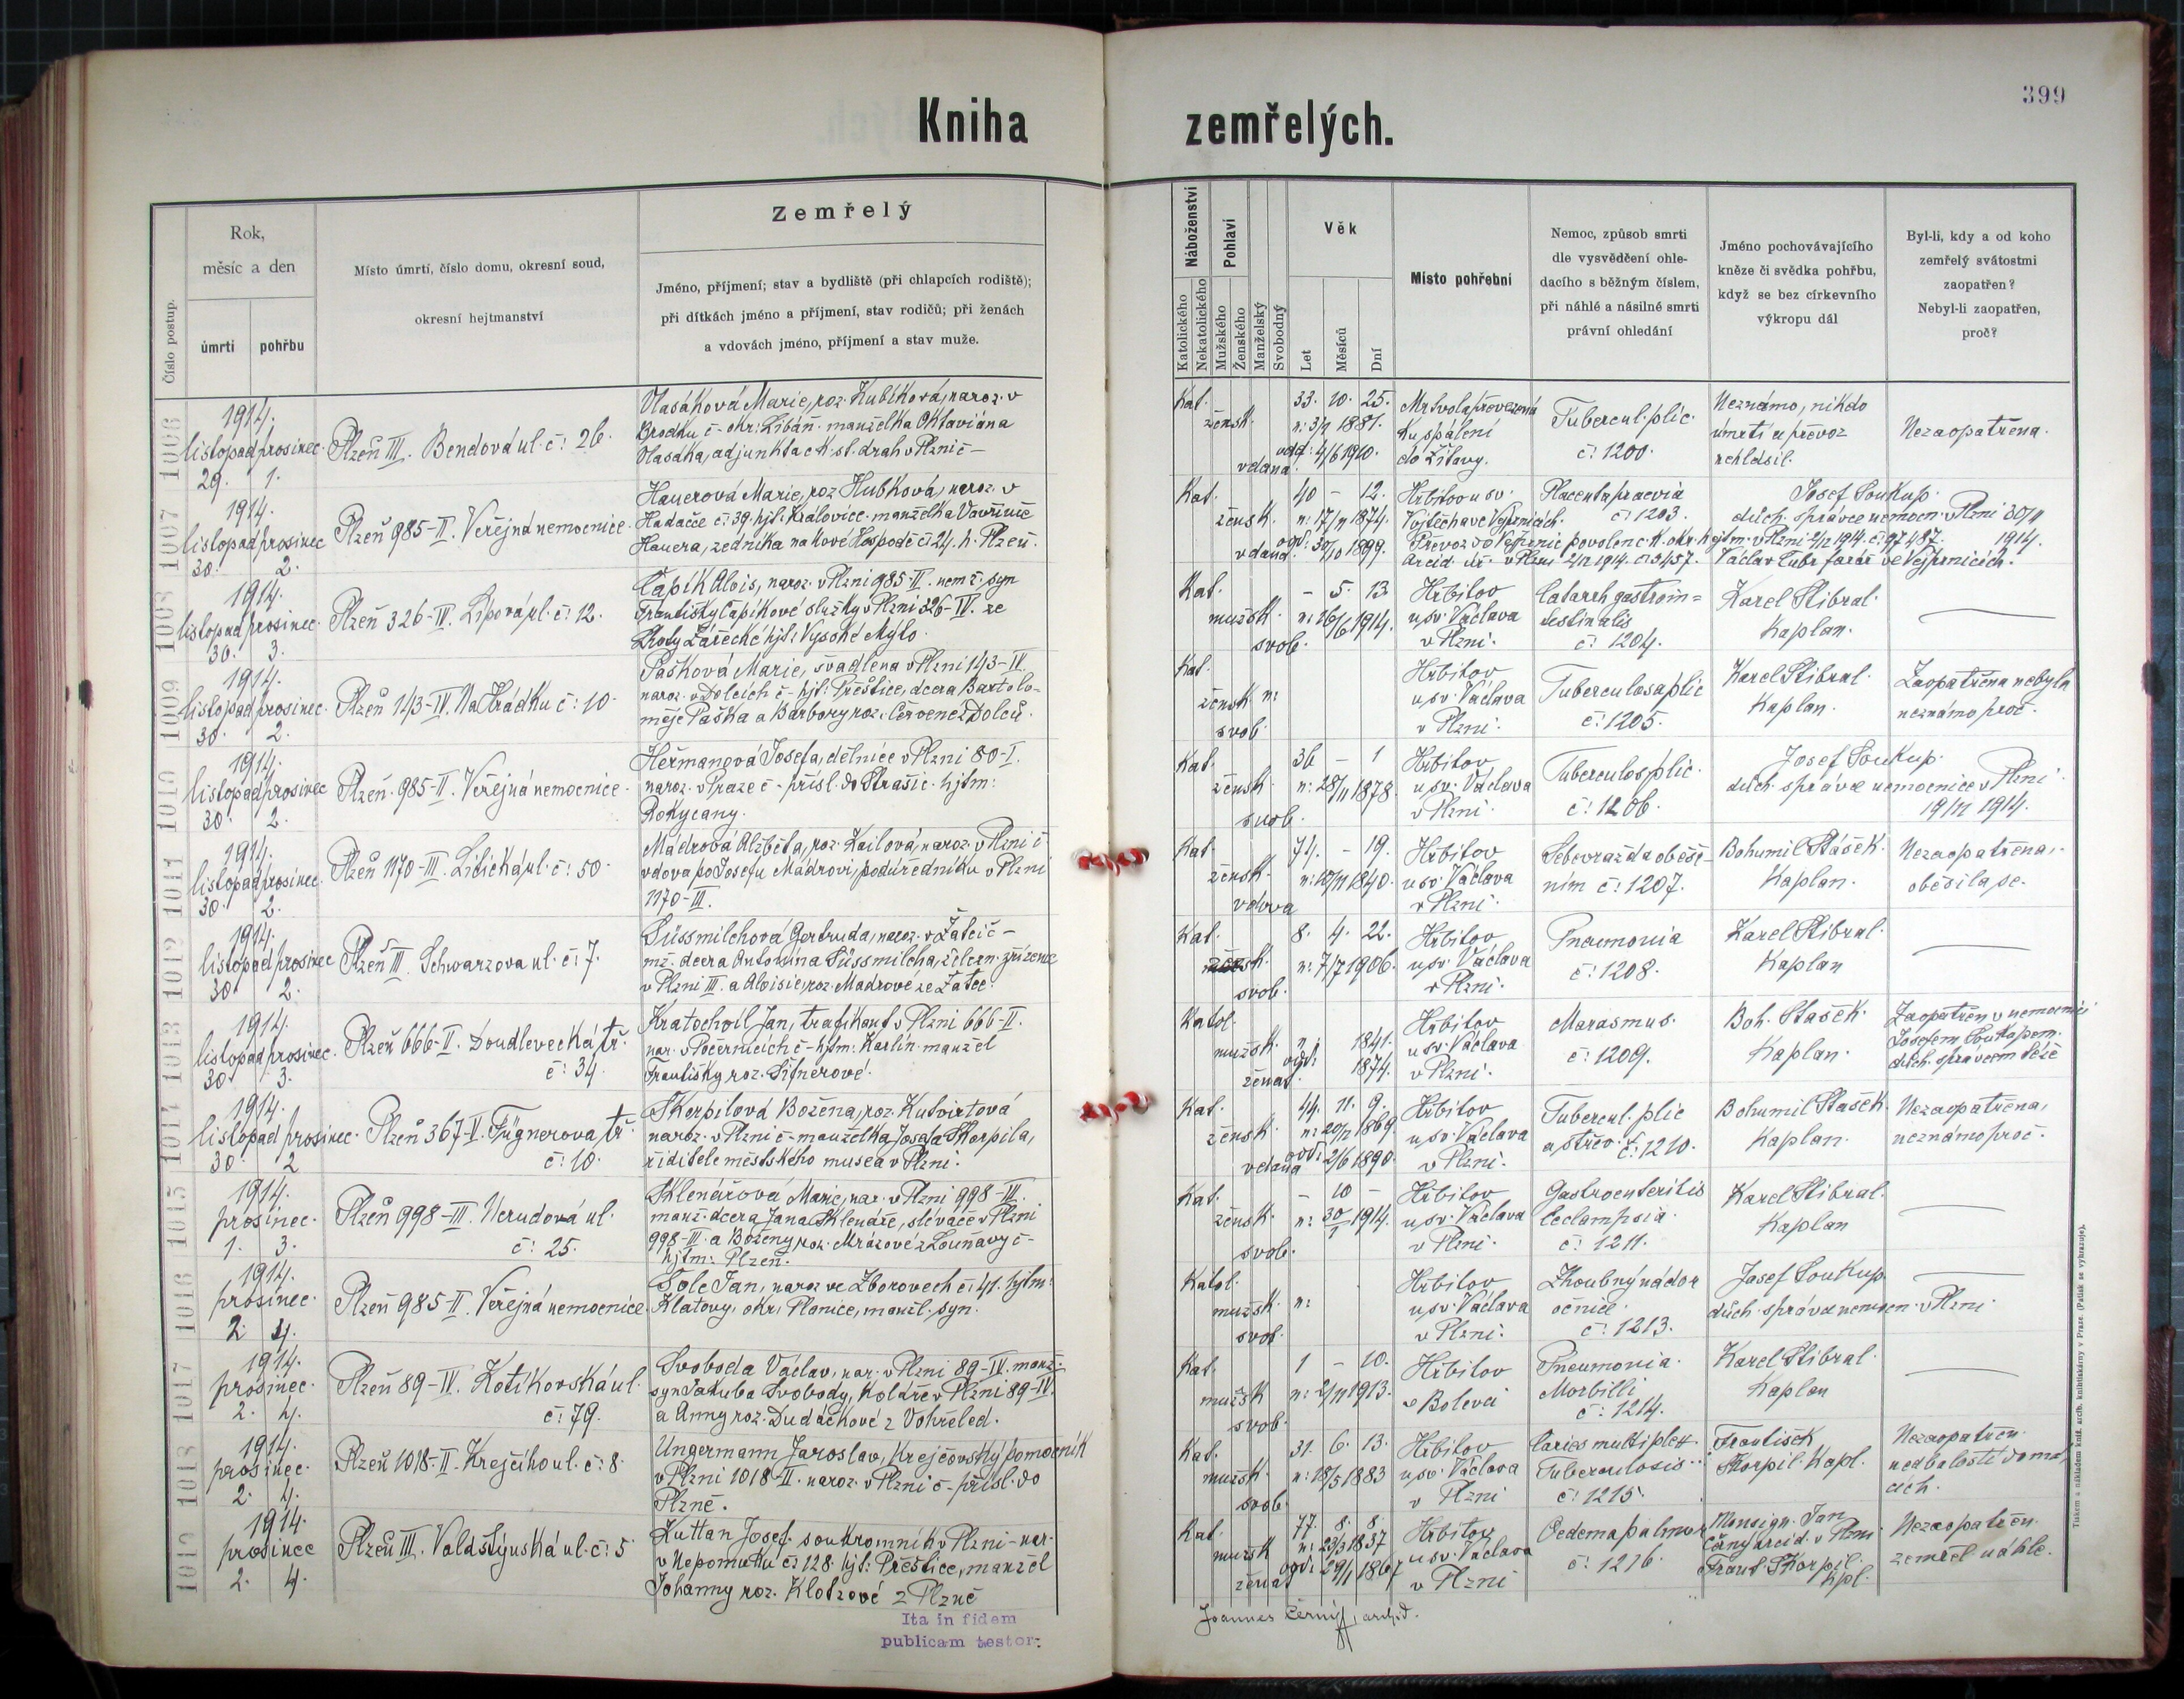 399
Kniha zemřelých.
Číslo postup.
Rok,
měsíc a den
úmrtí
pohřbu
Místo úmrtí, číslo domu, okresní soud,
okresní hejtmanství
Zemřelý
Jméno, příjmení; stav a bydliště (při chlapcích rodiště);
při dítkách jméno a příjmení, stav rodičů; při ženách
a vdovách jméno, příjmení a stav muže.
Náboženství
Katolického
Nekatolického
Pohlaví
Mužského
Ženského
Manželský
Svobodný
Věk
Let
Měsíců
Dní
Místo pohřební
Nemoc, způsob smrti
dle vysvědčení ohle-
dacího s běžným číslem,
při náhlé a násilné smrti
právní ohledání
Jméno pochovávajícího
kněze či svědka pohřbu,
když se bez církevního
výkropu dál
Byl-li, kdy a od koho
zemřelý svátostmi
zaopatřen?
Nebyl-li zaopatřen,
proč?
1006
1914.
listopad prosinec.
29. 1.
Plzeň III. Bendová ul. č: 26.
Vlasáková Marie, roz. Kubíková, naroz. v
Brodku č - okr: Libáň. manželka Oktaviána
Vlasáka, adjunkta c k. st. drah v Plzni č -
Kat.
žensk.
vdaná
33. 10. 25.
n: 3/1 1881.
odd: 4/6 1910.
Mrtvola převezena
ku spálení
do Žitavy.
Tubercul. plic.
č: 1200.
Neznámo, nikdo
úmrtí a převoz
nehlásil.
Nezaopatřena.
1007
1914.
listopad prosinec
30. 2.
Plzeň 985-II. Veřejná nemocnice.
Hauerová Marie, roz Hubková, naroz. v
Hadačce č: 39. hjt: Královice. manželka Vavřince
Hauera, zedníka na Nové Hospodě č: 24. h. Plzeň.
Kat.
žensk.
vdaná
40 - 12.
n: 17/11 1874.
odd: 30/10 1899.
Hřbitov u sv.
Vojtěcha ve Vejprnicích.
Placenta praevia
č: 1203.
Josef Soukup.
duch. správce nemocn. v Plzni 30/11
1914.
Převoz do Vejprnic povolen c. k. okr. hejtm. v Plzni 2/12 1914. č: 97487.
Arcid. úř. v Plzni 2/12 1914. č: 3457. Václav Cubr farář ve Vejprnicích.
1008
1914.
listopad prosinec.
30. 3.
Plzeň 326-IV. Lipová ul. č: 12.
Čapík Alois, naroz. v Plzni 985-II. nem ž. syn
Františky Čapíkové služky v Plzni 326-IV. ze
Lhoty Zářecké hjt: Vysoké Mýto.
Kat.
mužsk.
svob.
- 5. 13.
n: 16/6 1914.
Hřbitov
u sv. Václava
v Plzni.
Catarrh gastroin=
testinalis
č: 1204.
Karel Stibral.
Kaplan.
1009
1914.
listopad prosinec.
30. 2.
Plzeň 143-IV. Na Hrádku č: 10.
Pašková Marie, švadlena v Plzni 143-IV
naroz. v Dolcích č - hjt: Přeštice, dcera Bartolo-
měje Paška a Barbory roz. Červené z Dolců.
Kat.
žensk. n:
svob.
Hřbitov
u sv. Václava
v Plzni.
Tuberculosa plic
č: 1205.
Karel Stibral.
Kaplan.
Zaopatřena nebyla
neznámo proč.
1010
1914.
listopad prosinec
30. 2.
Plzeň. 985-II. Veřejná nemocnice.
Heřmanová Josefa, dělnice v Plzni 80-I.
naroz. v Praze č - přísl. do Strašic. hjtm:
Rokycany.
Kat.
žensk.
svob.
36 - 1
n: 28/11 1878.
Hřbitov
u sv. Václava
v Plzni.
Tuberculos plic.
č: 1206.
Josef Soukup.
duch. správce nemocnice v Plzni
19/11 1914.
1011
1914.
listopad prosinec.
30. 2.
Plzeň 1170-III. Lidická ul. č: 50
Mádrová Alžběta, roz. Kailová, naroz. v Plzni č
vdova po Josefu Mádrovi, podúředníku v Plzni
1170-III.
Kat.
žensk.
vdova
74. - 19.
n: 12/11 1840.
Hřbitov
u sv. Václava
v Plzni.
Sebevražda oběše-
ním č: 1207.
Bohumil Stašek.
Kaplan.
Nezaopatřena,
oběsila se.
1012
1914.
listopad prosinec
30 2.
Plzeň III. Schwarzova ul. č: 7.
Süssmilchová Gertruda, naroz. v Žatci č -
mž. dcera Antonína Süssmilcha, železn. zřízence
v Plzni III. a Aloisie, roz. Mádrové ze Žatec.
Kat.
svob.
8. 4. 22.
n: 7/7 1906.
Hřbitov
u sv. Václava
v Plzni.
Pneumonia
č: 1208.
Karel Stibral.
Kaplan
1013
1914.
listopad prosinec.
30 3.
Plzeň 666-II. Doudlevecká tř.
č: 34.
Kratochvíl Jan, trafikant v Plzni 666-II.
nar. v Počernicích č - hjtm: Karlín. manžel
Františky roz. Šifnerové.
Katol.
mužsk.
ženat.
n: 1841.
odd: 1874.
Hřbitov
u sv. Václava
v Plzni.
Marasmus.
č: 1209.
Boh. Stašek.
Kaplan.
Zaopatřen v nemocnici
Josefem Soukupem.
duch. správcem téže
1014
1914.
listopad prosinec.
30. 2
Plzeň 367-V. Fügnerova tř.
č: 10.
Škorpilová Božena, roz. Kutvirtová
naroz. v Plzni č - manželka Josefa Škorpila,
ředitele městského musea v Plzni.
Kat.
žensk.
vdaná
44. 11. 9.
n: 20/12 1869.
odd: 2/6 1890.
Hřbitov
u sv. Václava
v Plzni.
Tubercul. plic
a střev. č: 1210.
Bohumil Stašek.
Kaplan.
Nezaopatřena,
neznámo proč.
1015
1914.
prosinec.
1. 3.
Plzeň 998-III. Nerudová ul.
č: 25.
Sklenářová Marie, nar. v Plzni 998-III.
manž. dcera Jana Sklenáře, slévače v Plzni
998-III. a Boženy, roz. Mrázové z Louňavy č -
hjtm: Plzeň.
Kat.
žensk.
svob.
- 10 -
n: 30/1 1914.
Hřbitov
u sv. Václava
v Plzni.
Gastroenteritis
Eclampsia.
č: 1211.
Karel Stibral.
Kaplan
1016
1914.
prosinec.
2. 4.
Plzeň 985-II. Veřejná nemocnice.
Tolc Jan, naroz ve Zborovech č: 41. hjtm:
Klatovy, okr: Planice, manžl. syn.
Katol.
mužsk. n:
svob.
Hřbitov
u sv. Václava
v Plzni.
Zhoubný nádor
očnice.
č: 1213.
Josef Soukup
duch. správce nemocn. v Plzni
1017
1914.
prosinec.
2. 4.
Plzeň 89-IV. Kotíkovská ul.
č: 79.
Svoboda Václav, nar. v Plzni 89-IV. manž.
syn Jakuba Svobody, koláře v Plzni 89-IV.
a Anny roz. Dudáčkové z Vohřeled.
Kat.
mužsk
svob.
1 - 10.
n: 2/11 1913.
Hřbitov
v Bolevci
Pneumonia.
Morbilli
č: 1214.
Karel Stibral.
Kaplan
1018
1914.
prosinec.
2. 4.
Plzeň 1018-II. Krejčího ul. č: 8.
Ungermann Jaroslav, krejčovský pomocník
v Plzni 1018-II. naroz. v Plzni č - přísl. do
Plzně.
Kat.
mužsk.
svob.
31. 6. 13.
n: 18/5 1883
Hřbitov
u sv. Václava
v Plzni
Caries multiplex
Tuberculosis
č: 1215.
František
Škorpil. Kapl.
Nezaopatřen.
nedbalostí domá-
cích.
1019
1914.
prosinec
2. 4.
Plzeň III. Valdštýnská ul. č: 5
Kuttan Josef. soukromník v Plzni - nar.
v Nepomuku č: 128. hjt: Přeštice, manžel
Johanny roz. Klotzové z Plzně
Kat.
mužsk
ženat
77. 8. 8.
n: 23/3 1837
odd: 29/1 1867
Hřbitov
u sv. Václava
v Plzni
Oedema pulmon
č: 1216.
Monsign. Jan
Černý arcid. v Plzni
Frant. Škorpil.
kpl.
Nezaopatřen.
zemřel náhle.
Ita in fidem
publicam testor:
Joannes Černý, archid.
Tiskem a nákladem kníž. arcib. knihtiskárny v Praze. (Patisk se vyhrazuje).